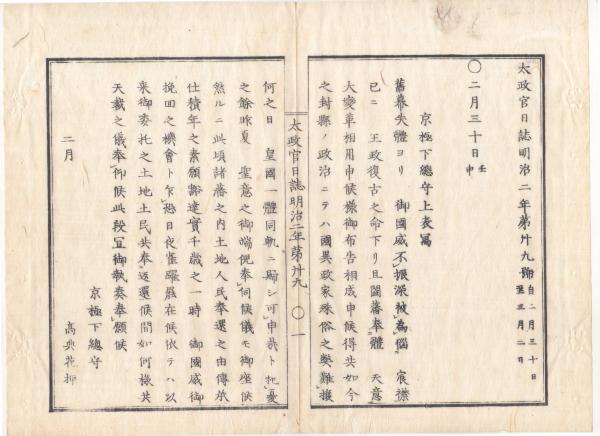 太政官日誌明治二年第廿九號 自二月三十日至三月二日
〇二月三十日 壬申
京極下總守上表寫
舊幕失體ヨリ 御國威不振深被爲惱 宸襟
已ニ 王政復古之命下リ且闔藩奉體 天意
大變革相用申候樣御布告相成申候得共如今
之封縣ノ政治ニテハ國異政家殊俗之弊難援
太政官日誌明治二年第廿九 〇一
何之日 皇國一體同軌ニ歸シ可申哉ト杞憂
之餘昨夏 聖意之御端倪奉伺候儀モ御座候
然ルニ此頃諸藩之内土地人民奉還之由傳承
仕積年之素願豁達實千歳之一時 御國威御
挽回之機會ト乍恐日夜雀躍罷在候依テハ以
來御委托之土地土民共奉返還候間如何樣共
天裁之儀奉仰候此段宜御執奏奉願候
二月
京極下總守
高典花押